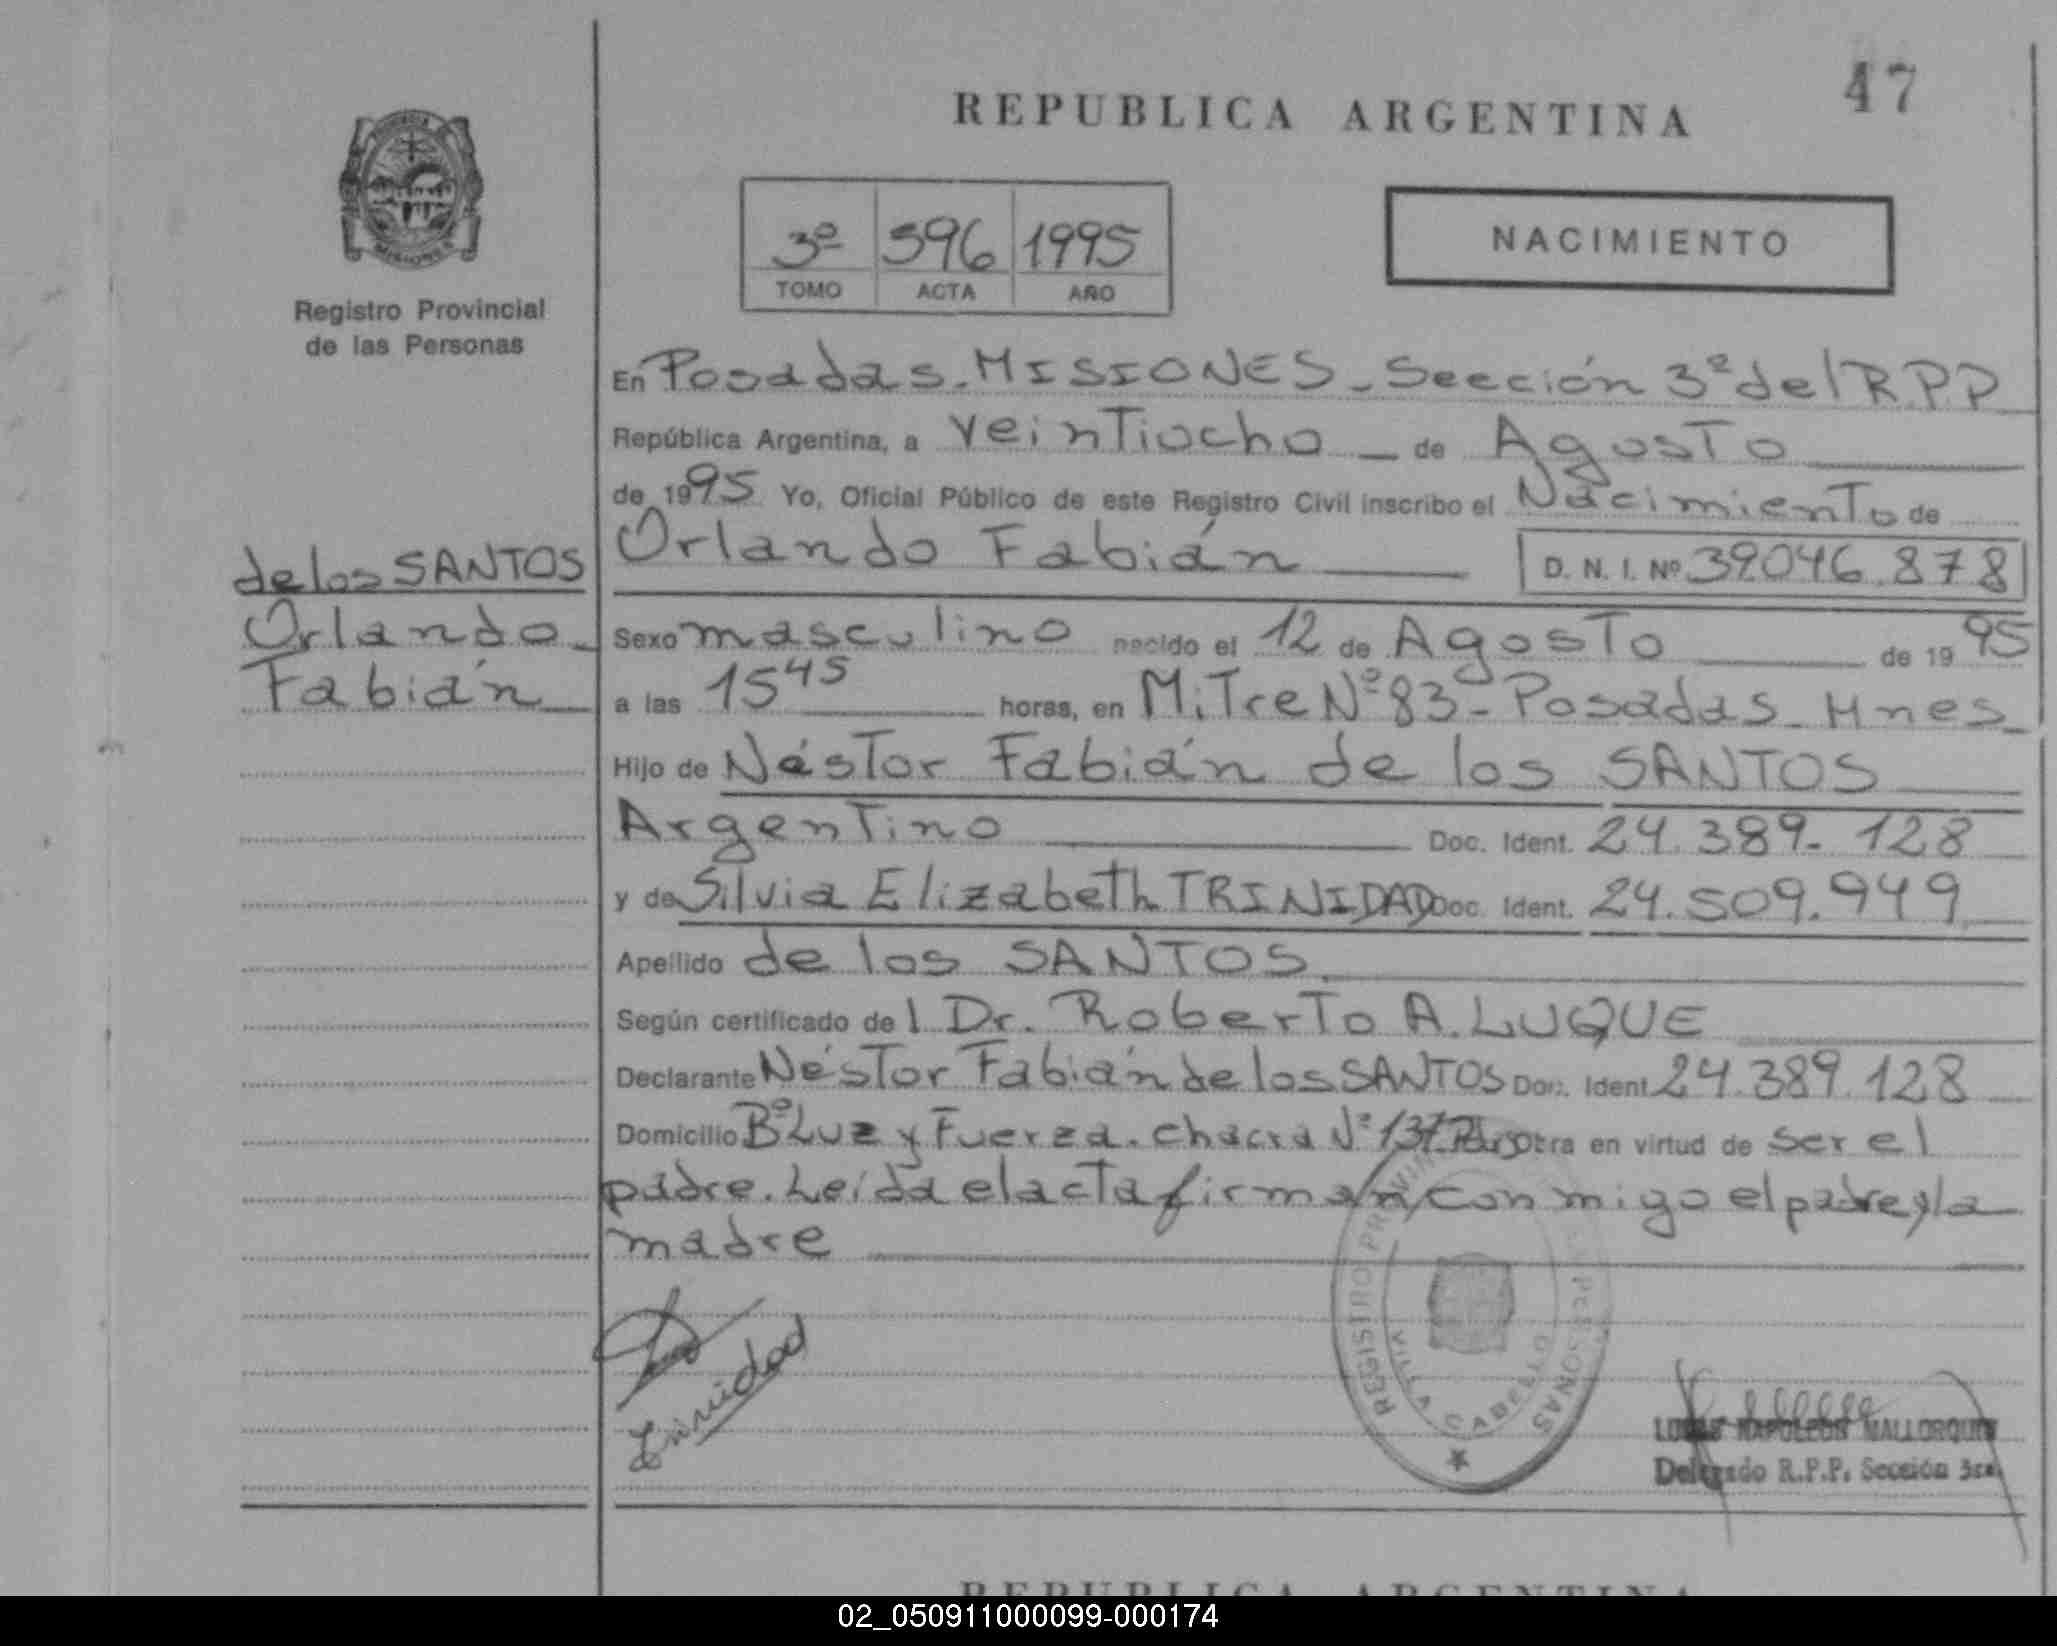 47
REPUBLICA ARGENTINA
MISIONES
Registro Provincial
de las Personas
3º 596 1995
TOMO ACTA AÑO
NACIMIENTO
En Posadas - MISIONES - Sección 3ª del R.P.P
República Argentina, a veintiocho de Agosto
de 1995 Yo, Oficial Público de este Registro Civil inscribo el Nacimiento de
Orlando Fabián D. N. I. Nº 39.046.878
de los SANTOS
Orlando
Fabián
Sexo masculino nacido el 12 de Agosto de 1995
a las 15 45 horas, en Mitre Nº 83 - Posadas - Mnes
Hijo de Néstor Fabián de los SANTOS
Argentino Doc. Ident. 24.389.128
y de Silvia Elizabeth TRINIDAD Doc. Ident. 24.509.949
Apellido de los SANTOS
Según certificado del Dr. Roberto A. LUQUE
Declarante Néstor Fabián de los SANTOS Doc. Ident 24.389.128
Domicilio Bº Luz y Fuerza. Chacra Nº 137 Obra en virtud de ser el
padre. Leída el acta firman conmigo el padre y la
madre
Trinidad
REGISTRO PROVIN PERSONAS
VILLA CABELLO
LUCAS NAPOLEON MALLORQUIN
Delegado R.P.P. Sección 3ra.
REPUBLICA ARGENTINA
02_050911000099-000174